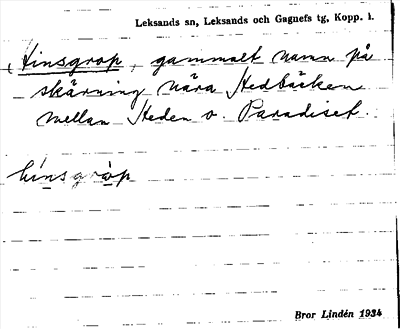 Leksands sn, Leksands och Gagnefs tg, Kopp. l.
Hinsgrop, gammalt namn på
skärning nära Hedbäcken
mellan Heden o. Paradiset.
hinsgròp
Bror Lindén 1934